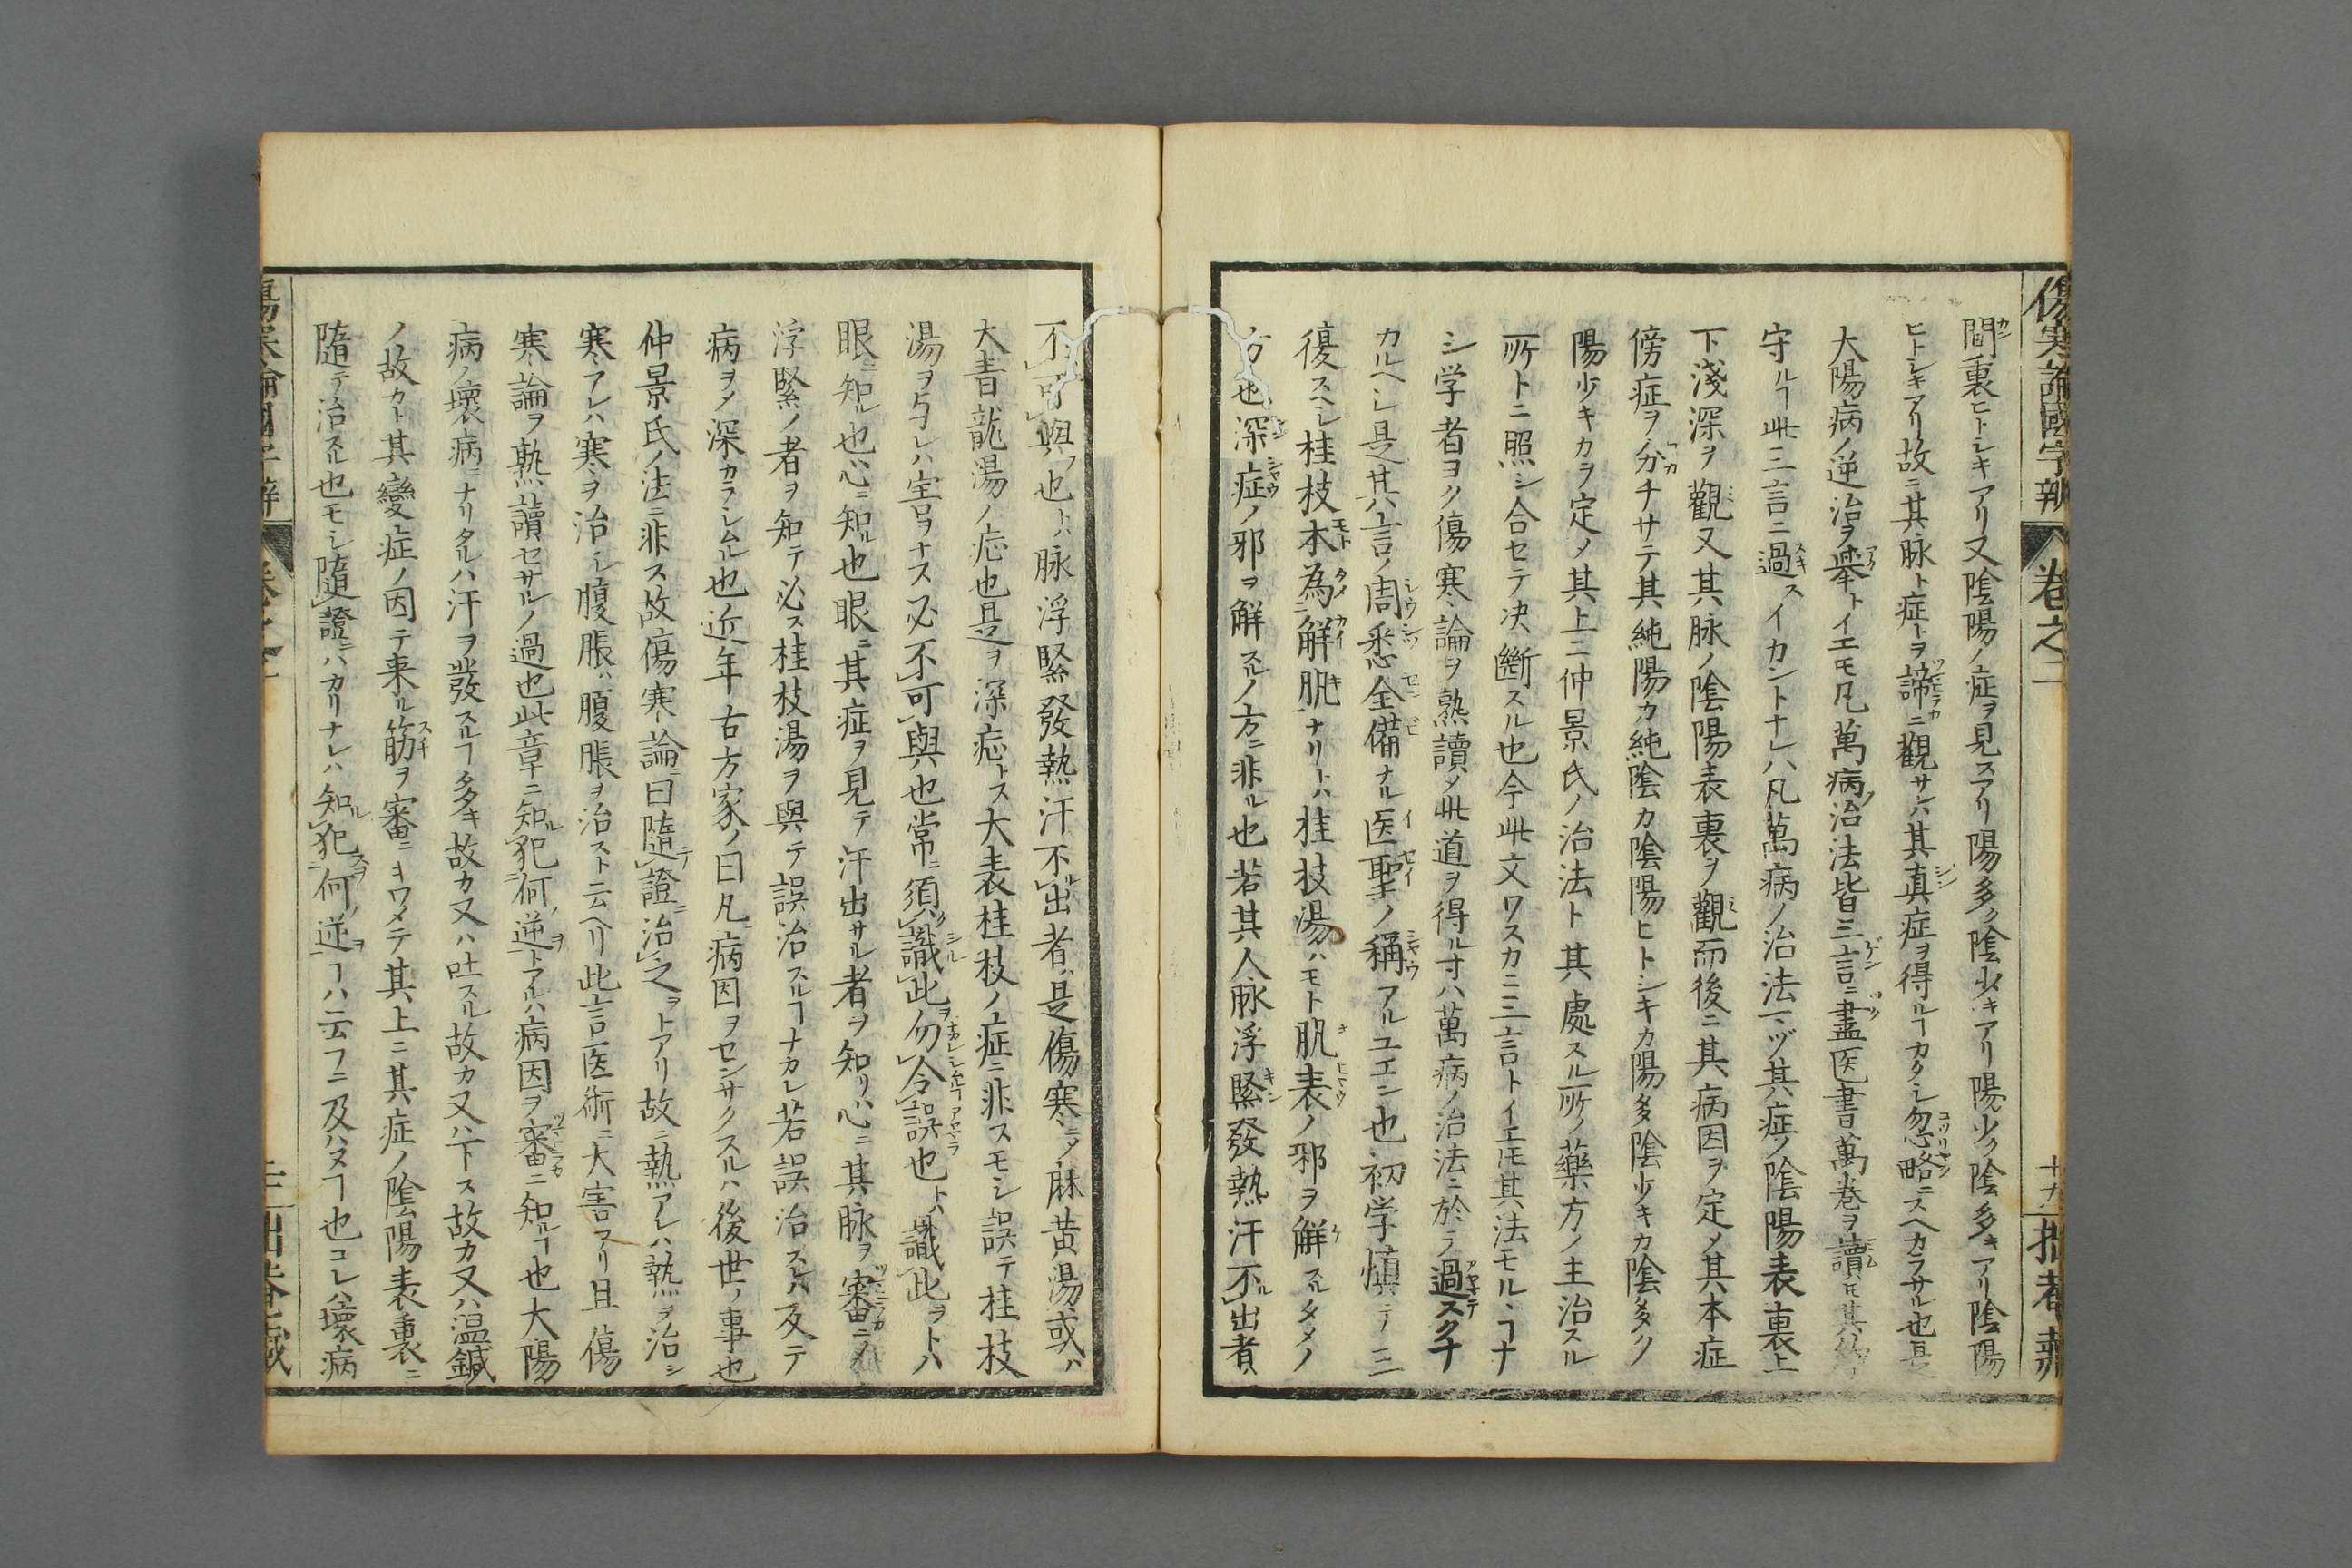 傷寒論國字辨 卷之二 十九
間裏ヒトシキアリ又陰陽ノ症ヲ見スアリ陽多ク陰少キアリ陽少ク陰多キアリ陰陽
ヒトシキアリ故ニ其脉ト症トヲ諦ニ觀サレハ其真症ヲ得ルヿカタシ忽略ニスヘカラサル也是
大陽病ノ逆治ヲ舉トイエモ凡萬病治法皆三言ニ盡医書萬巻ヲ讀モ其
守ルヿ此三言ニ過スイカントナレハ凡萬病ノ治法マヅ其症ノ陰陽表裏上
下淺深ヲ觀又其脉ノ陰陽表裏ヲ觀而後ニ其病因ヲ定メ其本症
傍症ヲ分チサテ其純陽カ純陰カ陰陽ヒトシキカ陽多陰少キカ陰多ク
陽少キカヲ定メ其上ニ仲景氏ノ治法ト其處スル所ノ藥方ノ主治スル
所トニ照シ合セテ决斷スル也今此文ワスカニ三言トイエモ其法モルヽヿナ
シ学者ヨク傷寒論ヲ熟讀メ此道ヲ得ル寸ハ萬病ノ治法ニ於テ過スクナ
カルヘシ是其言ノ周悉全備ナル医聖ノ稱アルユエン也初学慎テ三
復スヘシ桂枝本為解肌ナリトハ桂枝湯ハモト肌表ノ邪ヲ解スルタメノ
方也深症ノ邪ヲ解スルノ方ニ非ル也若其人脉浮緊發熱汗不出者
不可與也トハ脉浮緊發熱汗不出者ハ是傷寒ニメ麻黄湯或ハ
大青龍湯ノ症也是ヲ深症トス大表桂枝ノ症ニ非スモシ誤テ桂枝
湯ヲ與レハ害ヲナス必不可與也常ニ須識此勿令誤也トハ識此ヲトハ
眼ニ知ル也心ニ知ル也眼ニ其症ヲ見テ汗出サル者ヲ知リ心ニ其脉ヲ審ニメ
浮緊ノ者ヲ知テ必ス桂枝湯ヲ與テ誤治スルヿナカレ若誤治スレハ反テ
病ヲメ深カラシムル也近年古方家ノ曰凡病因ヲセンサクスルハ後世ノ事也
仲景氏ノ法ニ非ス故傷寒論ニ曰隨證治之ヲトアリ故ニ熱アレハ熱ヲ治シ
寒アレハ寒ヲ治シ腹脹ハ腹脹ヲ治スト云ヘリ此言医術ニ大害アリ且傷
寒論ヲ熟讀セサルノ過也此章ニ知犯何逆トアルハ病因ヲ審ニ知ルヿ也大陽
病ノ壞病ニナリタルハ汗ヲ發スルヿ多キ故カ又ハ吐スル故カ又ハ下ス故カ又ハ温鍼
ノ故カト其變症ノ因テ来ル筋ヲ審ニキワメテ其上ニ其症ノ陰陽表裏ニ
隨テ治スル也モシ隨證ニハカリナレハ知犯何逆ヿハ云フニ及ハヌヿ也コレハ壞病